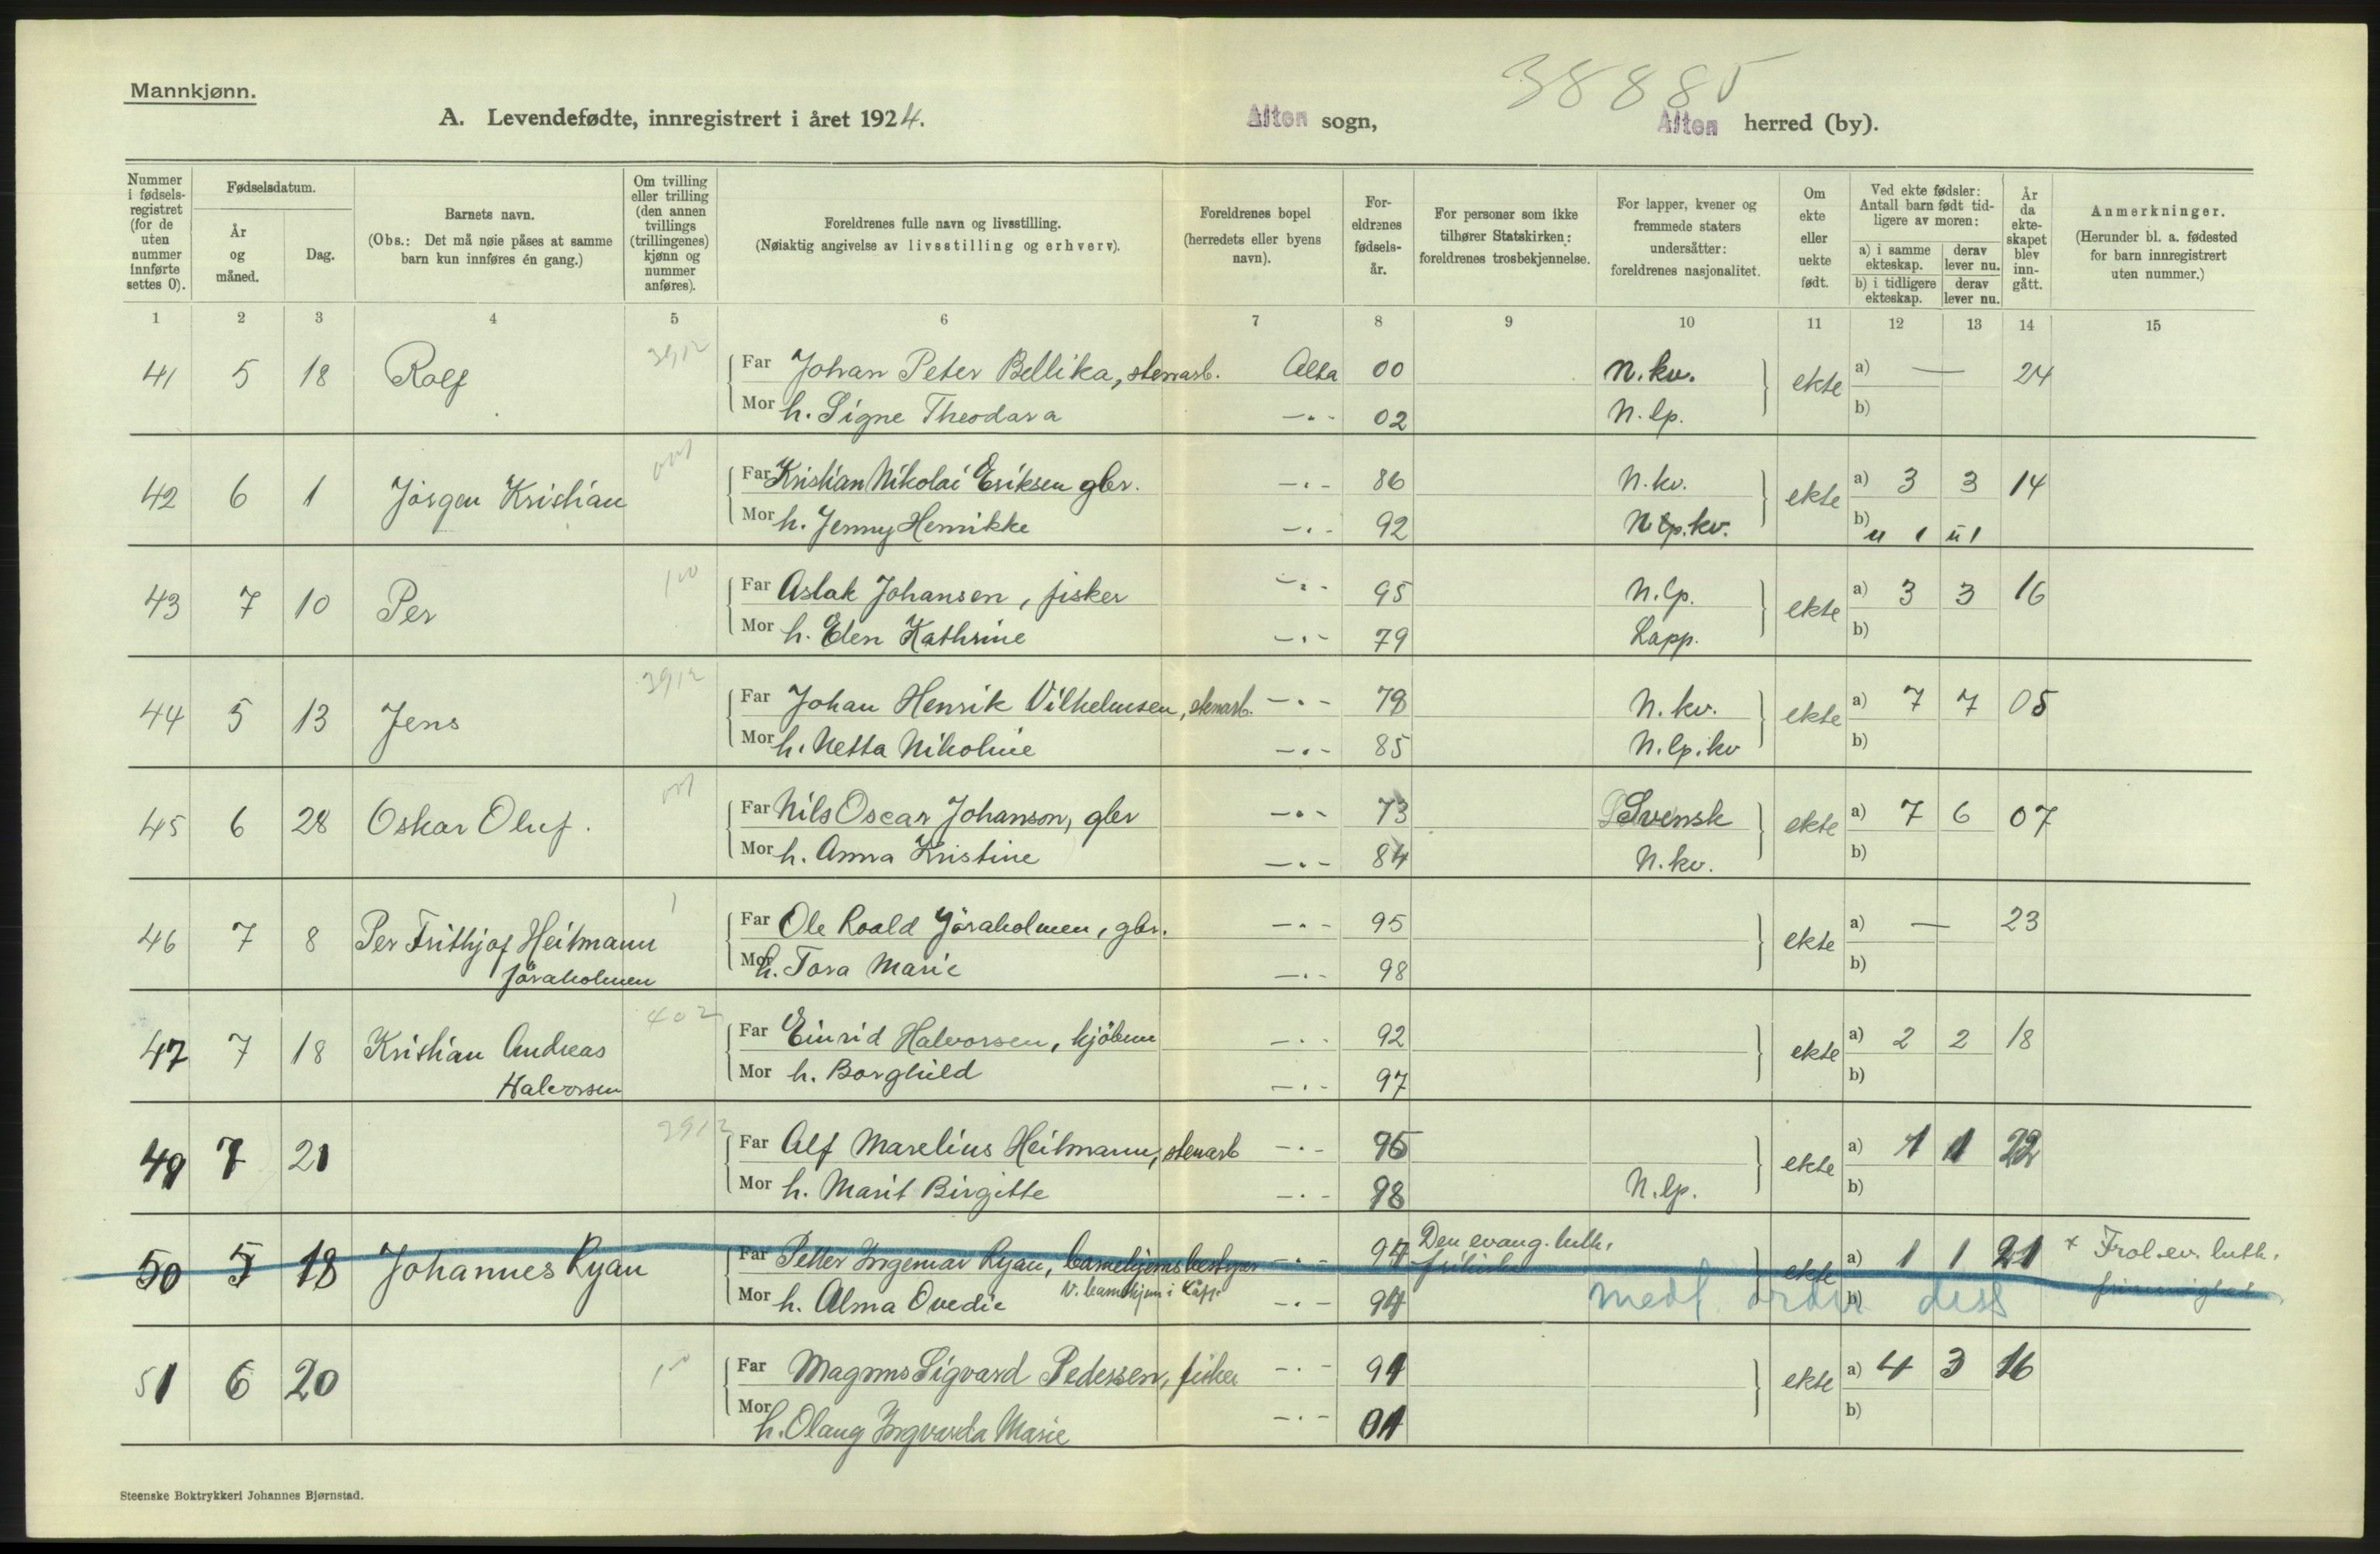 Mannkjønn.
38885
A. Levendefødte, innregistrert i året 1924.
Alten sogn,
Alten herred (by).
Nummer i fødsels-registret (for de uten nummer innførte settes 0).
Fødselsdatum.
År og måned.
Dag.
Barnets navn.
(Obs.: Det må nøie påses at samme barn kun innføres én gang.)
Om tvilling eller trilling (den annen tvillings (trillingenes) kjønn og nummer anføres).
Foreldrenes fulle navn og livsstilling.
(Nøiaktig angivelse av livsstilling og erhverv).
Foreldrenes bopel (herredets eller byens navn).
For-eldrenes fødsels-år.
For personer som ikke tilhører Statskirken: foreldrenes trosbekjennelse.
For lapper, kvener og fremmede staters undersåtter: foreldrenes nasjonalitet.
Om ekte eller uekte født.
Ved ekte fødsler: Antall barn født tid-ligere av moren:
a) i samme ekteskap.
derav lever nu.
b) i tidligere ekteskap.
derav lever nu.
År da ekte-skapet blev inn-gått.
Anmerkninger.
(Herunder bl. a. fødested for barn innregistrert uten nummer.)
1 2 3 4 5 6 7 8 9 10 11 12 13 14 15
41 5 18 Rolf 3912 Far Johan Peter Bellika, stenarb. Alta 00 N.kv. ekte a) — 24
Mor h. Signe Theodara —"— 02 N.lp. b)
42 6 1 Jörgen Kristian Far Kristian Nikolai Eriksen gbr. —"— 86 N.kv. ekte a) 3 3 14
Mor h. Jenny Henrikke —"— 92 N lp.kv. b) u 1 u 1
43 7 10 Per 100 Far Aslak Johansen, fisker —"— 95 N.lp. ekte a) 3 3 16
Mor h. Elen Kathrine —"— 79 Lapp. b)
44 5 13 Jens 3912 Far Johan Henrik Vilhelmsen, stenarb. —"— 79 N.kv. ekte a) 7 7 05
Mor h. Netta Nikoline —"— 85 N.lp.kv b)
45 6 28 Oskar Oluf. Far Nils Oscar Johanson, gbr —"— 73 Svensk ekte a) 7 6 07
Mor h. Anna Kristine —"— 84 N.kv. b)
46 7 8 Per Frithjof Heitmann Jöraholmen 1 Far Ole Roald Jöraholmen, gbr. —"— 95 ekte a) — 23
Mor h. Tora Marie —"— 98 b)
47 7 18 Kristian Andreas Halvorsen 402 Far Einrid Halvorsen, kjöbm —"— 92 ekte a) 2 2 18
Mor h. Borghild —"— 97 b)
49 7 21 3912 Far Alf Marelius Heitmann, stenarb —"— 95 ekte a) 1 1 22
Mor h. Marit Birgitte —"— 98 N.lp. b)
50 5 18 Johannes Ryan Far Petter Ingemar Ryan, barnehjemsbestyrer —"— 94 Den evang. luth. frikirke ekte a) 1 1 21 × Frol. ev. luth.
v. barnehjem i
Mor h. Alma Ovedie —"— 94 b)
51 6 20 Far Magnus Sigvard Pedersen, fisker —"— 91 ekte a) 4 3 16
Mor h. Olaug Ingvarda Marie —"— b)
Steenske Boktrykkeri Johannes Bjørnstad.